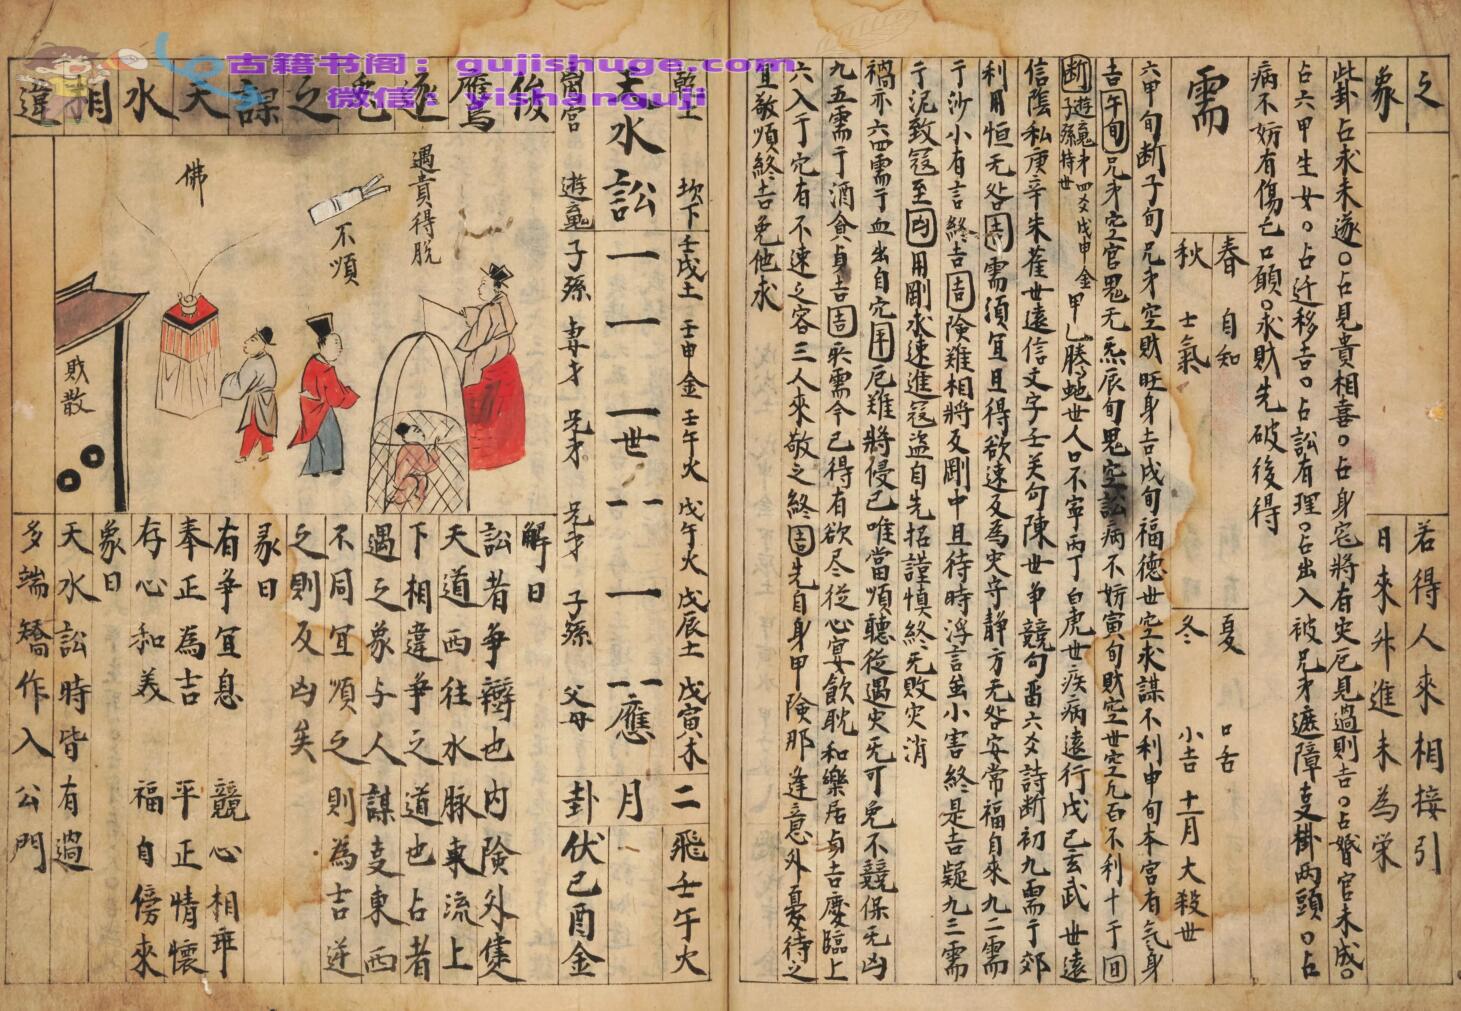 古籍书阁：gujishuge.com
微信：yishanguji
之
象
若得人來相接引
日來升進未為栄
此卦占求未遂○占見貴相喜○占身宅將有灾厄見過則吉○占婚官未成○
占六甲生女○占迁移吉○占訟有理○占出入被兄才遮障支掛兩頭○占
病不妨有傷亡口願○求財先破後得
需
春 自知
秋 士氣
夏 口舌
冬 小吉 十一月大殺世
六甲旬断子旬兄才空財旺身吉戌旬福德世空求謀不利申旬本宮有氣身
吉午旬兄才空官鬼无炁辰旬鬼空訟病不妨寅旬財空世空凡百不利十干囬
断 遊䰟才四爻戊申金 子孫持世 甲乙騰蛇世人口不宰丙丁白虎世疾病遠行戊己玄武世遠
信陰私庚辛朱雀世遠信文字壬关句陳世争競句畨六爻詩断初九需于郊
利用恒无咎吉需須宜且得欲速反為灾守静方无咎安常福自來九二需
于沙小有言終吉吉険難相將及剛中且待時浮言虽小害終是吉疑九三需
于泥致寇至凶用剛求速進寇盗自先招謹慎終无敗灾消
禍亦六四需于血出自穴平厄难將侵己唯當順聽從遇灾无可免不競保无凶
九五需于酒食貞吉吉耎需今已得有欲尽従心宴飲耽和樂居貞吉慶臨上
六入于穴有不速之客三人來敬之終吉吉先自身甲険那逢意外憂待之
宜敬順終吉免他求
乾上 坎下 壬戌土 壬申金 壬午火 戊午火 戊辰土 戊寅木 二 飛壬午火
天水訟 世 應 月
離宮 遊䰟 子孫 專才 兄才 兄才 子孫 父母 卦 伏己酉金
俊鷹逐兔之課天水相違
遇貴得脫
不順
佛
財散
解曰
訟者争辯也内険外健
天道西往水脉東流上
下相違争之道也占者
遇之象与人謀支東西
不同宜順之則為吉逆
之則反凶矣
彖曰
有争宜息 競心相乖
奉正為吉 平正情懷
存心和美 福自傍來
象曰
天水訟時皆有過
多端矯作入公門